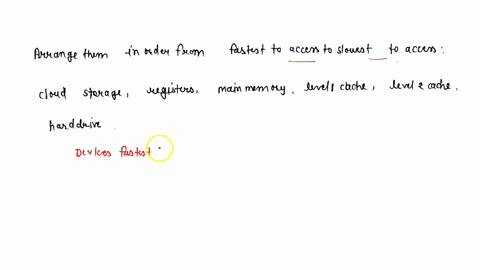 Arrange them in order from fastest to access to slowest to access:
cloud storage, registers, main memory, level 1 cache, level 2 cache,
hard drive.
Devices fastest